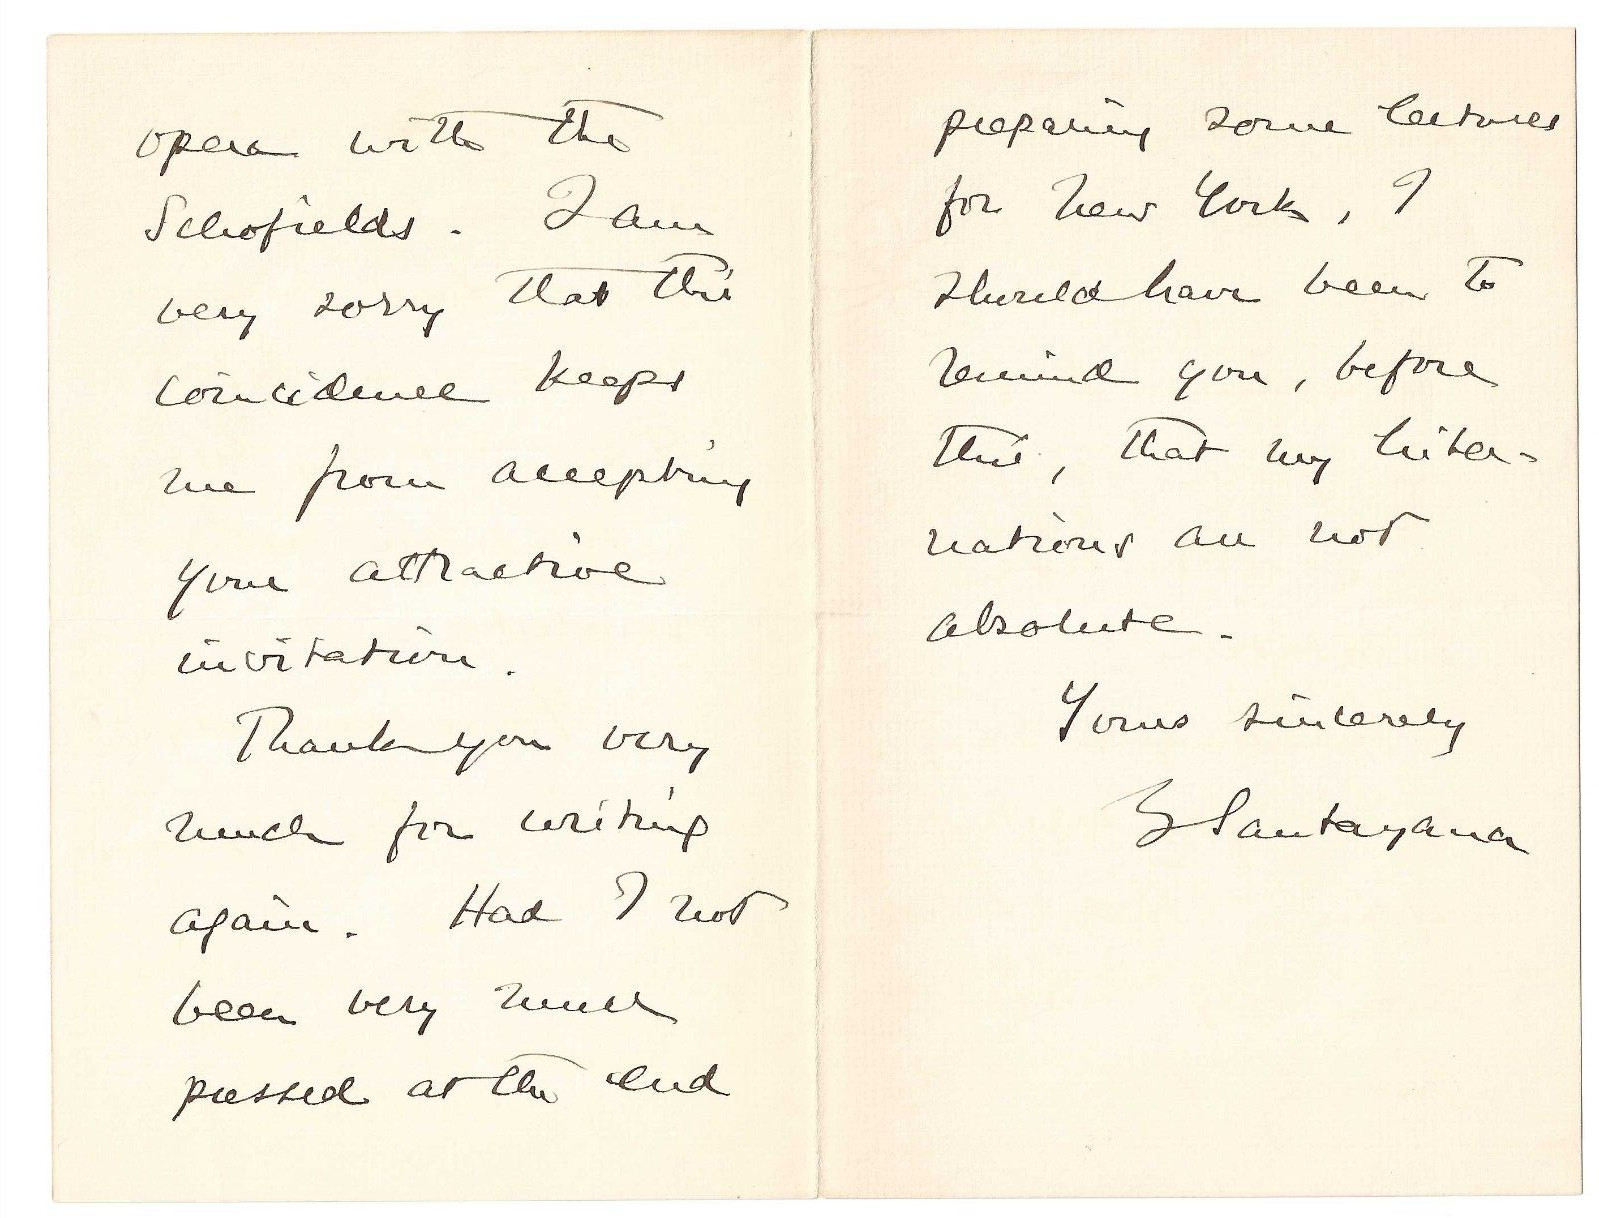 opera with the
Schofields. I am
very sorry that this
coincidence keeps
me from accepting
your attractive
invitation.
Thank you very
much for writing
again. Had I not
been very much
pressed at the end
preparing some lectures
for New York, I
should have been to
remind you, before
this, that my hiber-
nations are not
absolute.
Yours sincerely
G Santayana